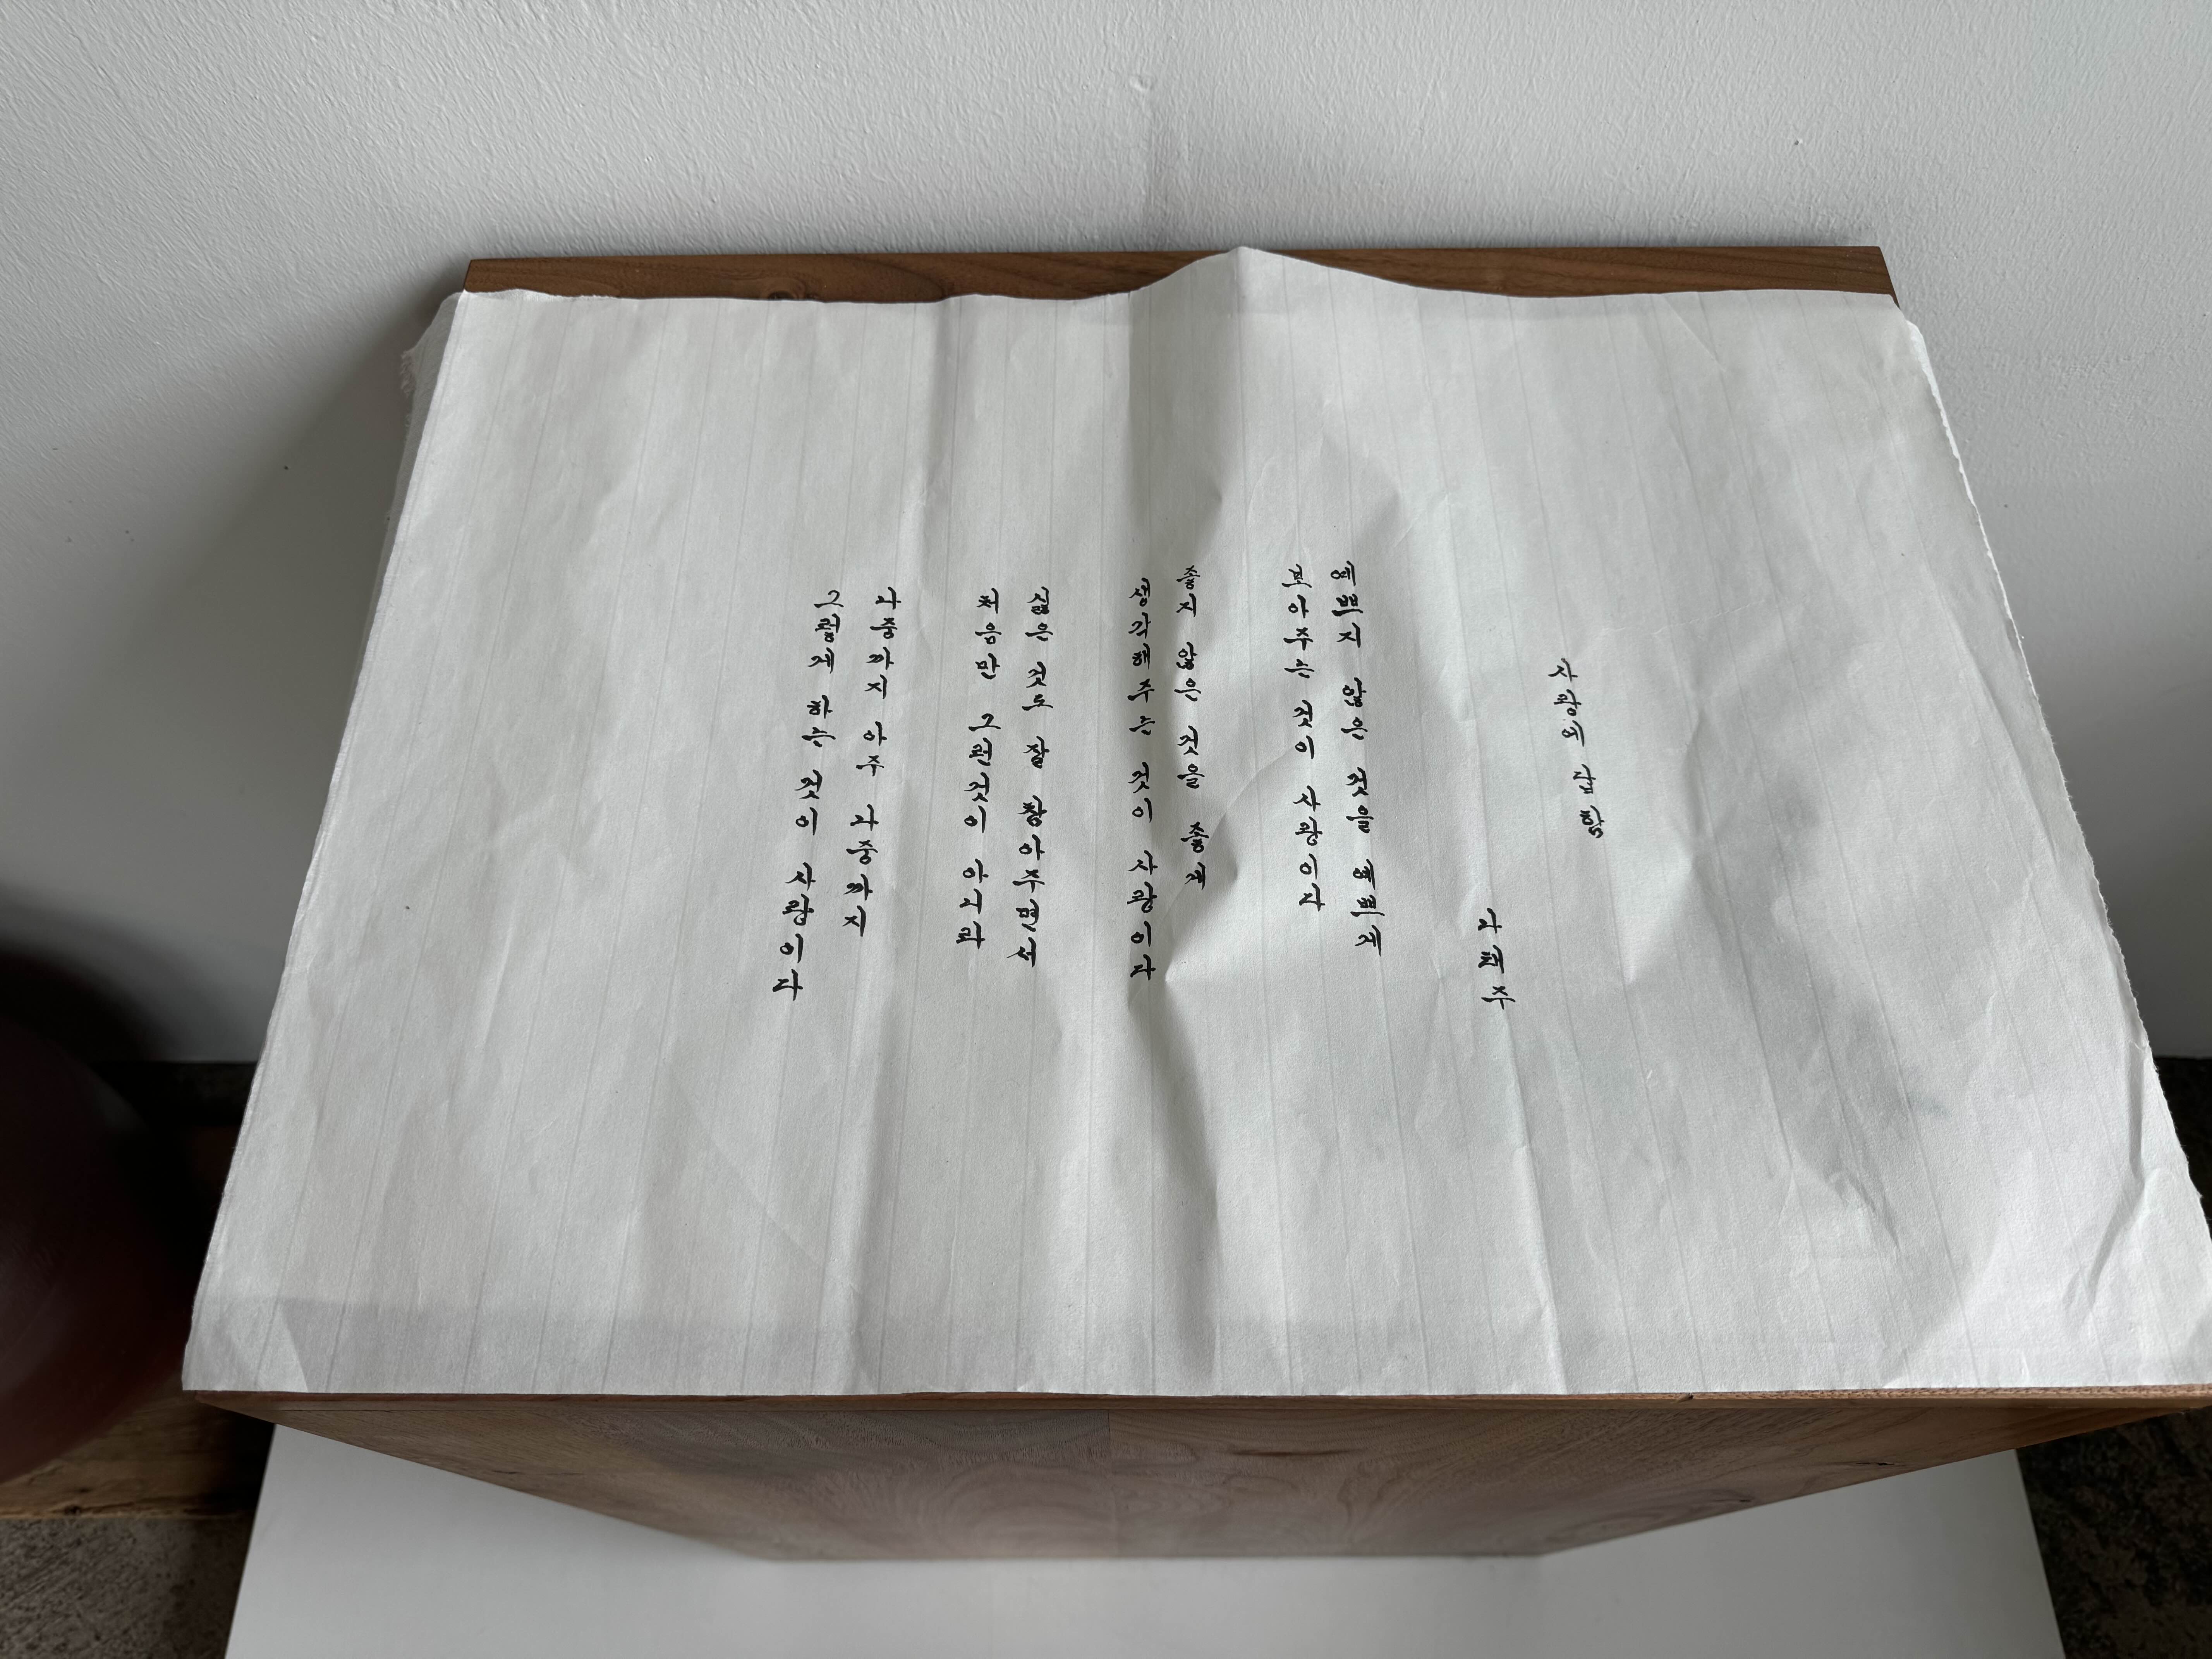 사랑에 답함
나태주
예쁘지 않은 것을 예쁘게
보아주는 것이 사랑이다
좋지 않은 것을 좋게
생각해주는 것이 사랑이다
싫은 것도 잘 참아주면서
처음만 그런것이 아니라
나중까지 아주 나중까지
그렇게 하는 것이 사랑이다